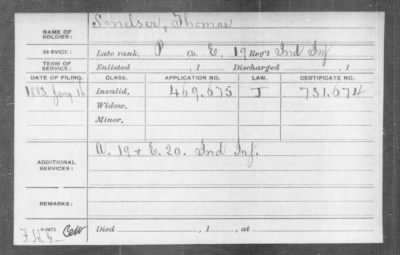 NAME OF SOLDIER: Smelser, Thomas
SERVICE: Late rank, P Co. E, 19 Reg't Ind Inf
TERM OF SERVICE: Enlisted , 1 Discharged , 1
DATE OF FILING. CLASS. APPLICATION NO. LAW. CERTIFICATE NO.
1883 Jany 16 Invalid, 469.675 J 731.674
Widow,
Minor,
ADDITIONAL SERVICES: A. 19 & E. 20. Ind Inf.
REMARKS:
Died , 1 , at